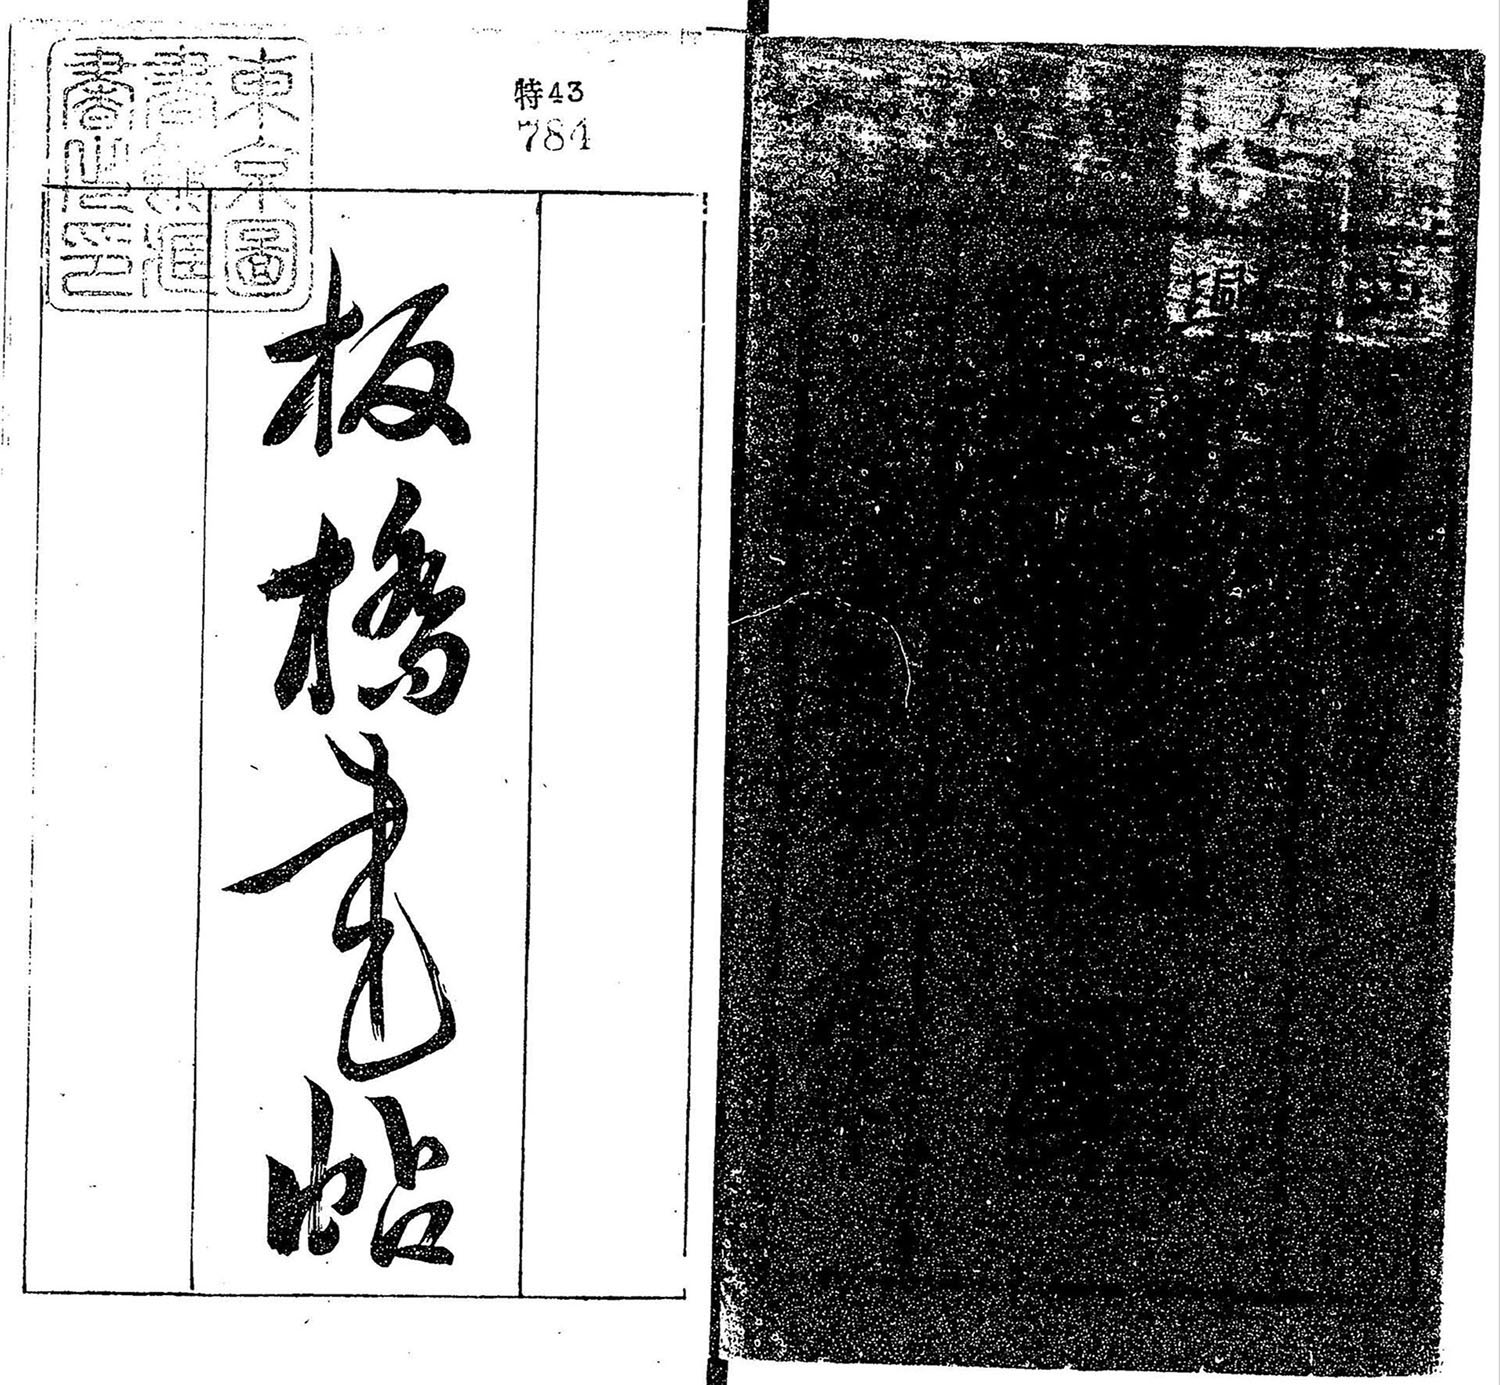 特43
784
東京圖
書館藏
書之印
板橋書帖